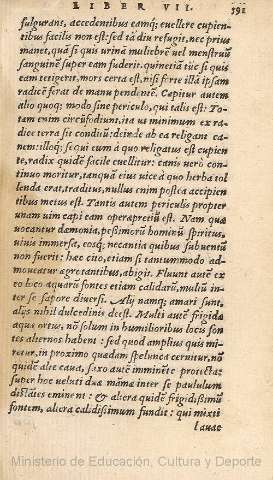 LIBER VII. 591
fulgurans, accedentibus eamq; euellere cupien-
tibus facilis non est: sed tã diu refugit, nec prius
manet, quã si quis urinã muliebrẽ uel menstruũ
sanguinẽ super eam fuderit. quinetiã tũc si quis
eam tetigerit, mors certa est, nisi forte illã ipsam
radicẽ ferat de manu pendentẽ. Capitur autem
alio quoq; modo sine periculo, qui talis est: To-
tam enim circũfodiunt, ita ut minimum ex ra-
dice terra sit conditũ: deinde ab ea religant ca-
nem: illoq; sequi eum à quo religatus est cupien-
te, radix quidẽ facile euellitur: canis uerò conti-
nuo moritur, tanquã eius uice à quo herba tol
lenda erat, traditus, nullus enim postea accipien
tibus metus est. Tantis autem periculis propter
unam uim eapi eam operæpretiũ est. Nam quæ
uocantur dæmonia, pessimorũ hominũ spiritus,
uiuis immersa, eosq; necantia quibus subuentũ
non fuerit: hæc cito, etiam si tantummodo ad-
moueatur ægrotantibus, abigit. Fluunt autẽ ex
eo loco aquarũ fontes etiam calidarũ, multũ in
ter se sapore diuersi. Alij namq; amari sunt,
alijs nihil dulcedinis deest. Multi autẽ frigida
aquæ ortus, nõ solum in humilioribus locis fon
tes alternos habent: sed quod amplius quis mi-
retur, in proximo quædam spelunca cernitur, nõ
quidẽ alte caua, saxo autẽ imminẽte protecta:
super hoc ueluti duæ mãmæ inter se paululum
distãtes eminent: & altera quidẽ frigidissimũ
fontem, altera calidissimum fundit: qui mixti
lauac
Ministerio de Educación, Cultura y Deporte